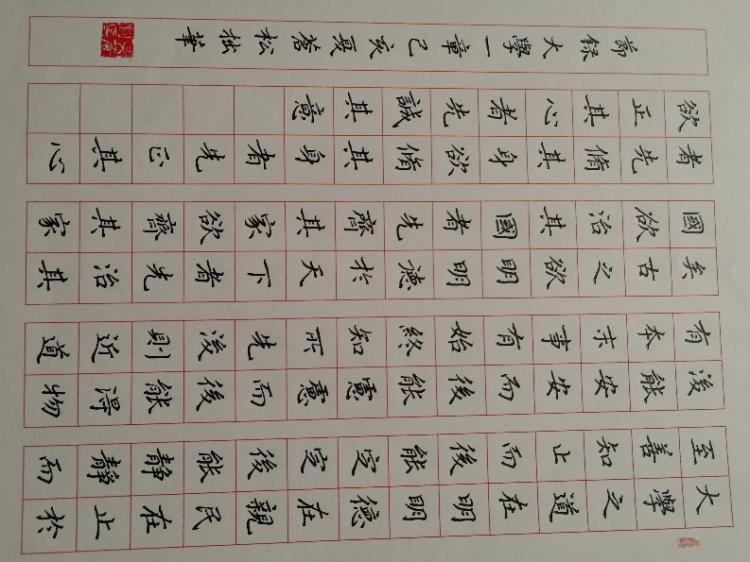 大學之道在明明德在親民在止於
至善知止而後能定定後能静靜而
後能安安而後能慮慮而後能得物
有本末事有始終知所先後則近道
矣古之欲明明德於天下者先治其
國欲治其國者先齊其家欲齊其家
者先脩其身欲脩其身者先正其心
欲正其心者先誠其意
節録大學一章己亥夏蒼松拙華